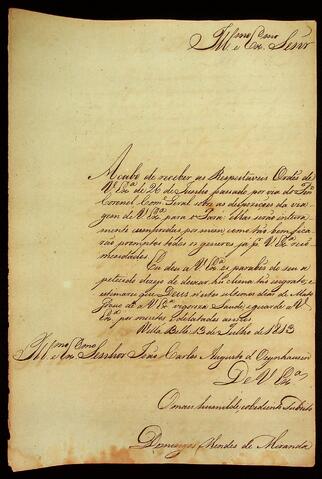 Ill.mo e Ex.mo Senr.
Acabo de receber as Respeitaveis Ordens de
V.Ex.a de 26 de Junho passado, por via do Ten.e
Coronel Com.e Geral sobre as disposições da via-
gem de V.Ex.a para o Pará: Ellas serão inteira-
mente cumpridas por mim, como
carão promptos todos os generos ja p.r V.Ex.a recõ-
mendados.
Eu dou a V.Ex.a os parabens do seu a-
petecido dezejo de deixar hú clima tão ingrato, e
estimarei que Deus nestes ultimos dias de Mato
Groso dê a V.Ex.a vigoroza Saude, e guarde a V.
Ex.a por muitos e dilatados annos.
Villa Bella 13 de Julho de 1813
Ill.mo e Ex.mo Senhor João Carlos Augusto d'Oeynhausen
De V.Ex.a
O mais humilde, e obediente Subdito
Domingos Mendes de Miranda